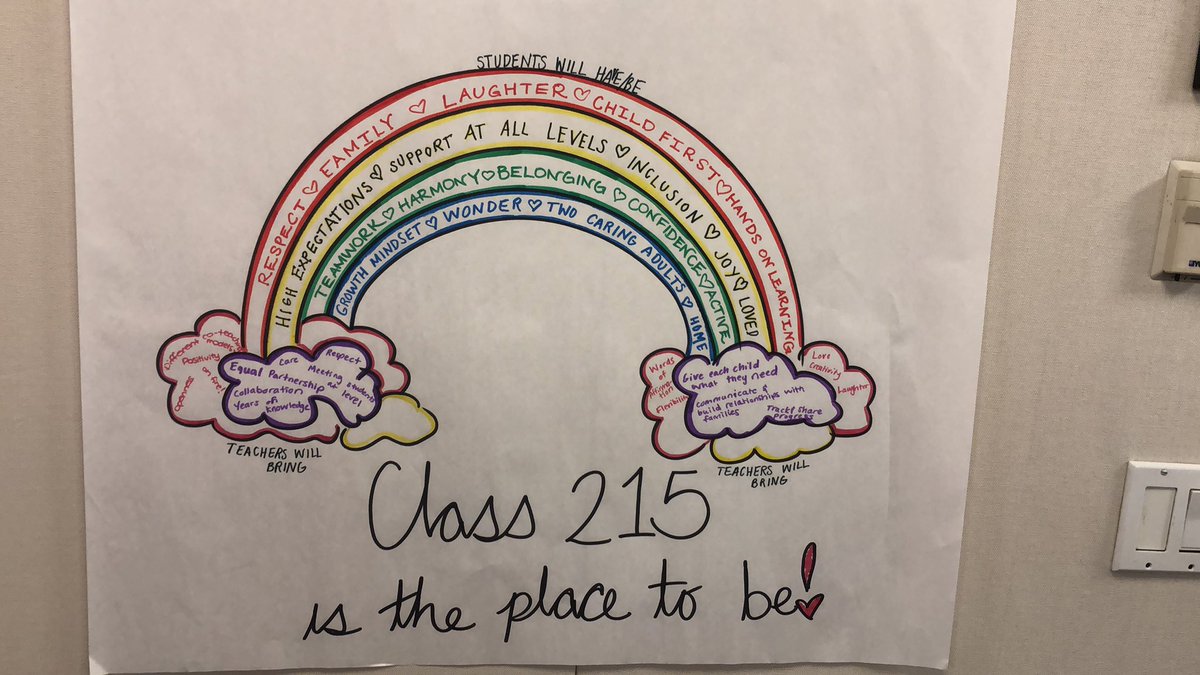 STUDENTS WILL HAVE/BE
RESPECT ♡ FAMILY ♡ LAUGHTER ♡ CHILD FIRST ♡ HANDS ON LEARNING
HIGH EXPECTATIONS ♡ SUPPORT AT ALL LEVELS ♡ INCLUSION ♡ JOY ♡ LOVED
TEAMWORK ♡ HARMONY ♡ BELONGING ♡ CONFIDENCE ♡ ACTIVE
GROWTH MINDSET ♡ WONDER ♡ TWO CARING ADULTS ♡ HOME
Different co-teaching
models
Positivity
on fire!
openness
care
Respect
Equal Partnership
Meeting students
at level
Collaboration
Years of
knowledge
TEACHERS WILL
BRING
Words
of
Flexibility
Give each child
what they need
communicate &
build relationships with
families
Track/share
progress
Love
Creativity
Laughter
TEACHERS WILL
BRING
Class 215
is the place to be!